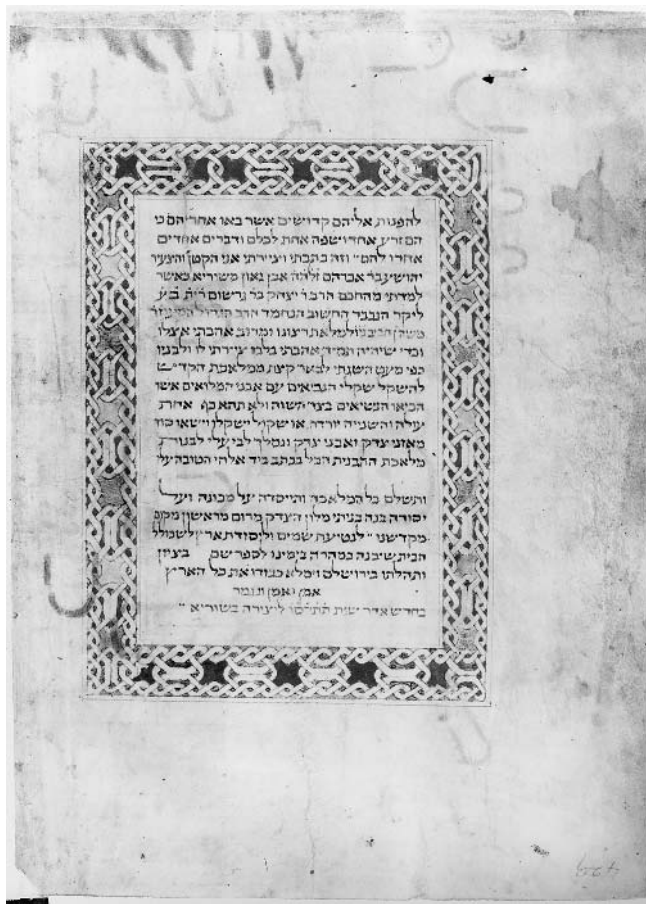 להפנות אליהם קדושים אשר באו אחריהם כי
הם זרע אחד ושפה אחת לכלם ודברים אחדים
אחדו להם וזה כתבתי ויצירתי אני הקטן והצעיר
יהושיע בר אברהם אבן גאון משוריא כאשר
למדתי מהחכם הרב ר יצחק בר גרשום
ליקר הנכבד החשוב הנחמד הרב
למלאת רצונו ומרוב אהבתי אצלו
וכדי שיהיה תמיד אהבתי גלמו יצירתי לו ולבניו
כפי מעט השגתי לבאר קצת ממלאכת הקדש
להשקל שקלי הנביאים עם אבני המלואים אשר
הביאו הנשיאים בצד השוה ולא תהא כף אחת
עולה והשנייה יורדה או שקול ישקלו וישאו כחד
מאזני צדק ואבני צדק ונמלך לבי עלי לבנות
מלאכת התבנית הכל בכתב ביד אלהי הטובה עלי
ותשלם כל המלאכה ותייסדה על מכונה ועל
יסודה בנה בניתי מלון הצדק מרום מראשון מקום
מקדשנו לנטיעת שמים וליסודת ארץ לשכלול
הבית שיבנה במהרה בימינו לספר שם בציון
ותהלתו בירושלם וימלא כבודו את כל הארץ
אמן ואמן ונגמר
בחדש אדר שנת התרסו ליצירה בשוריא